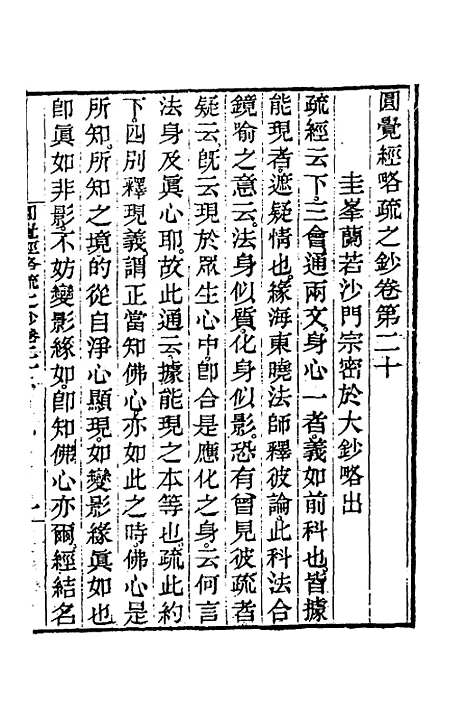 圓覺經略疏之鈔卷第二十
圭峯蘭若沙門宗密於大鈔略出
疏經云下。三會通兩文。身心一者。義如前科也。皆據
能現者。遮疑情也。緣海東曉法師釋彼論。此科法合
鏡喻之意云。法身似質。化身似影。恐有曾見彼疏者
疑云。旣云現於眾生心中。卽合是應化之身。云何言
法身及眞心耶。故此通云據能現之本等也。疏此約
下。四別釋現義。謂正當知佛心亦如此之時。佛心是
所知。所知之境的從自淨心顯現。如變影緣眞如也
卽眞如非影。不妨變影緣如。卽知佛心亦爾。經結名
圓覺經略疏之鈔卷二十